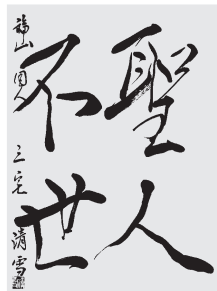 聖人
不世
福山 貝 三宅 清雪